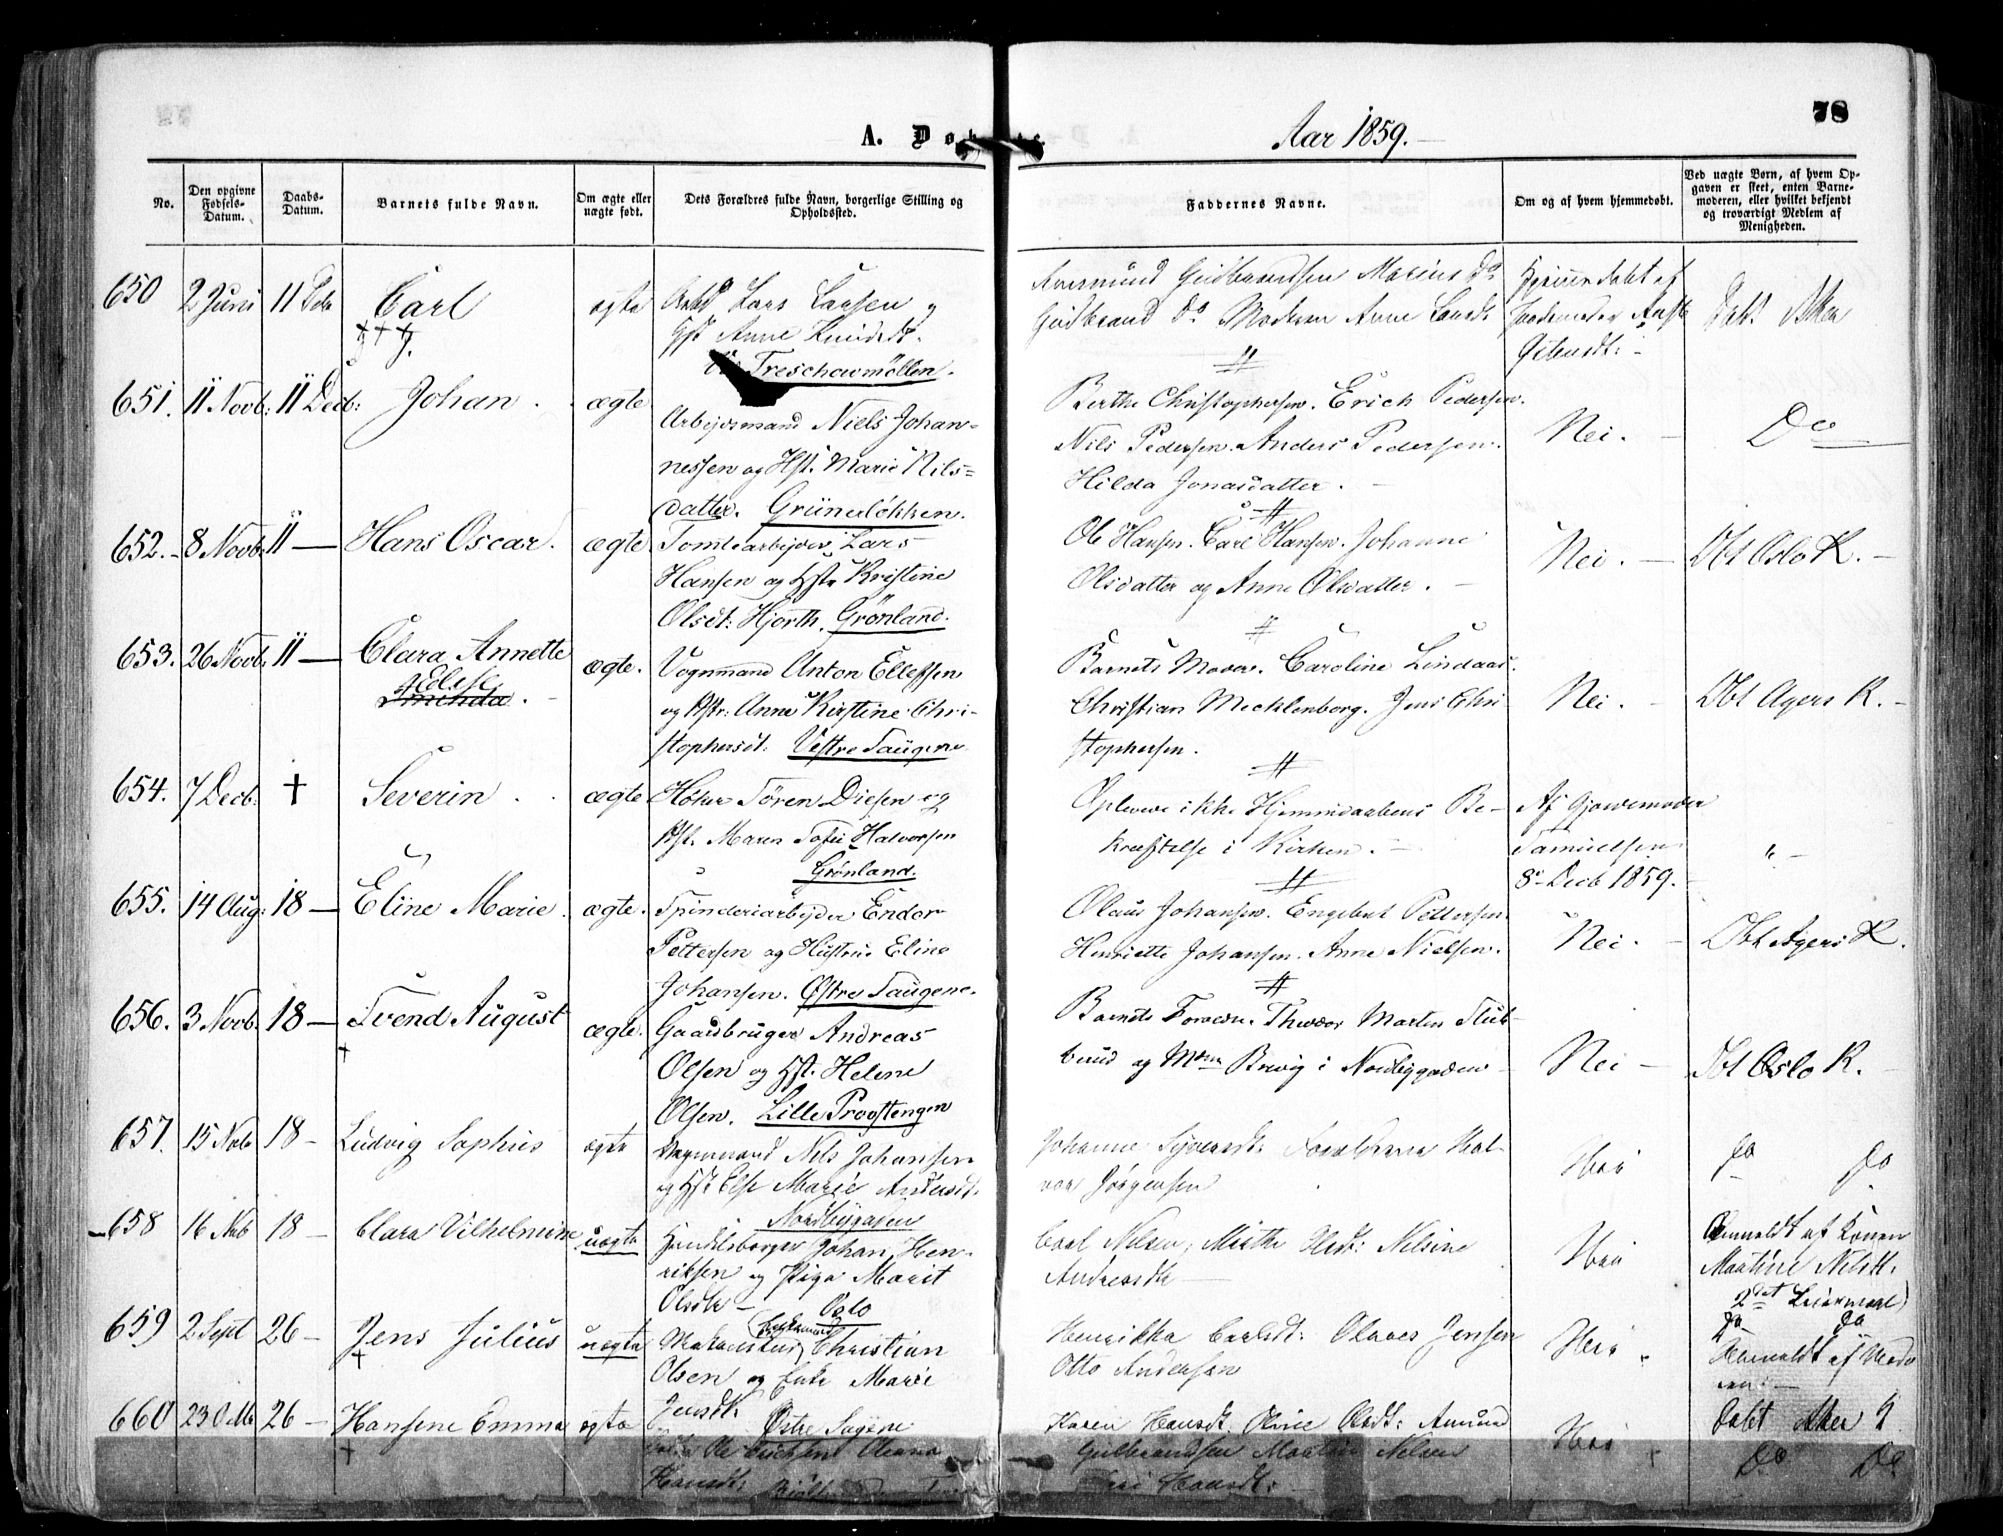 78
A. Døbte.
Aar 1859.
No.
Den opgivne Fødsels-Datum.
Daabs-Datum.
Barnets fulde Navn.
Om ægte eller uægte født.
Dets Forældres fulde Navn, borgerlige Stilling og Opholdssted.
Faddernes Navne.
Om og af hvem hjemmedøbt.
Ved uægte Børn, af hvem Opgaven er skeet, enten Barnemoderen, eller hvilket bekjendt og troværdigt Medlem af Menigheden.
650 2 Juni 11 Carl ægte Lars Larsen og
Anne Knudsdt.
Treschowmöllen.
Gudbrandsen Marius Do
Gudbrand Do Moderen Anne Larsdt.
Hjemmedøbt af
Jordemoder
Døbt Aker
651. 11 Novb: 11 Decb: Johan. ægte
Arbeidsmand Niels Johan-
nessen og Hst. Marie Nils-
datter. Grünerløkken.
Berthe Christophersen. Erich Pedersen.
Nils Pedersen. Anders Pedersen.
Hilda Jonasdatter.
Nei. Do
652. 8 Novb. 11 — Hans Oscar. ægte Tomtearbeider Lars
Hansen og Hstr Kristine
Olsdt: Hjorth. Grönland.
Ole Hansen. Carl Hansen. Johanne
Olsdatter og Anne Olsdatter.
Nei. Dbt Oslo K.
653. 26 Novb. 11 — Clara Annette
ægte. Vognmand Anton Ellefsen
og Hstr: Anne Kirstine Chri-
stophersdt. Vestre Saugene.
Barnets Moder. Caroline Lindaas.
Christian Mecklenborg. Jens Chri
stophersen.
Nei. Dbt Agers K.
654. 7 Decb. † Severin. ægte Høker Sören Diesen og
Hst. Maren Sofie Halvorsen
Grønland.
Oplevede ikke Hjemmedaabens Be-
kræftelse i Kirken.
Af Gjordemoder
Samuelsen
8 Decb 1859.
„ –
655. 14 Aug: 18 — Eline Marie. ægte. Spinderiarbejder Endor
Pettersen og Hustru Eline
Johansen. Østre Saugene.
Olaus Johansen. Engebret Pettersen.
Henriette Johansen. Anne Nielsen.
Nei. Dbt Agers K.
656. 3 Novb. 18 — Svend August
†
ægte. Gaardbruger Andreas
Olsen og Hst. Helene
Olsen. Lille Provstengen
Barnets Forældre. Theodor Marten Stub-
berud og Mdm Brevig i Nordbygaden
Nei – Dbt Oslo K.
657. 15 Nob 18 – Ludvig Sophus ægte Nils Johansen
og Hst Else Marie Andersdt.
Nordbygaden
Johanne Hal-
vor Jörgensen
Nei do do
658 16 Nob 18 – Clara Vilhelmine uægte Johan Hen-
riksen og Pige Marit
Olsdtr – Oslo
Carl Nilsen, Mathe Olsdt: Nilsine
Andreasdtr
Nei Anmeldt af Konen
Martine Nilsdt.
2det Leiermaal
659 2 Sept 26 – Jens Julius
†
uægte Christian
Olsen og Enke Marie
Jensdt. Østre Sagene
Henrikka Carlsdt: Olaves Jensen
Otto Andersen
Nei do do
Anmeldt af Mode
ren: –
660 23 Okt 26 – Hansine Emma
†
ægte
Hansdt.
Karen Hansdt. Oline Olsdt: Amund
Gulbrandsen Martin Nilsen
Hansdt:
Nei Døbt Aker
Do Do